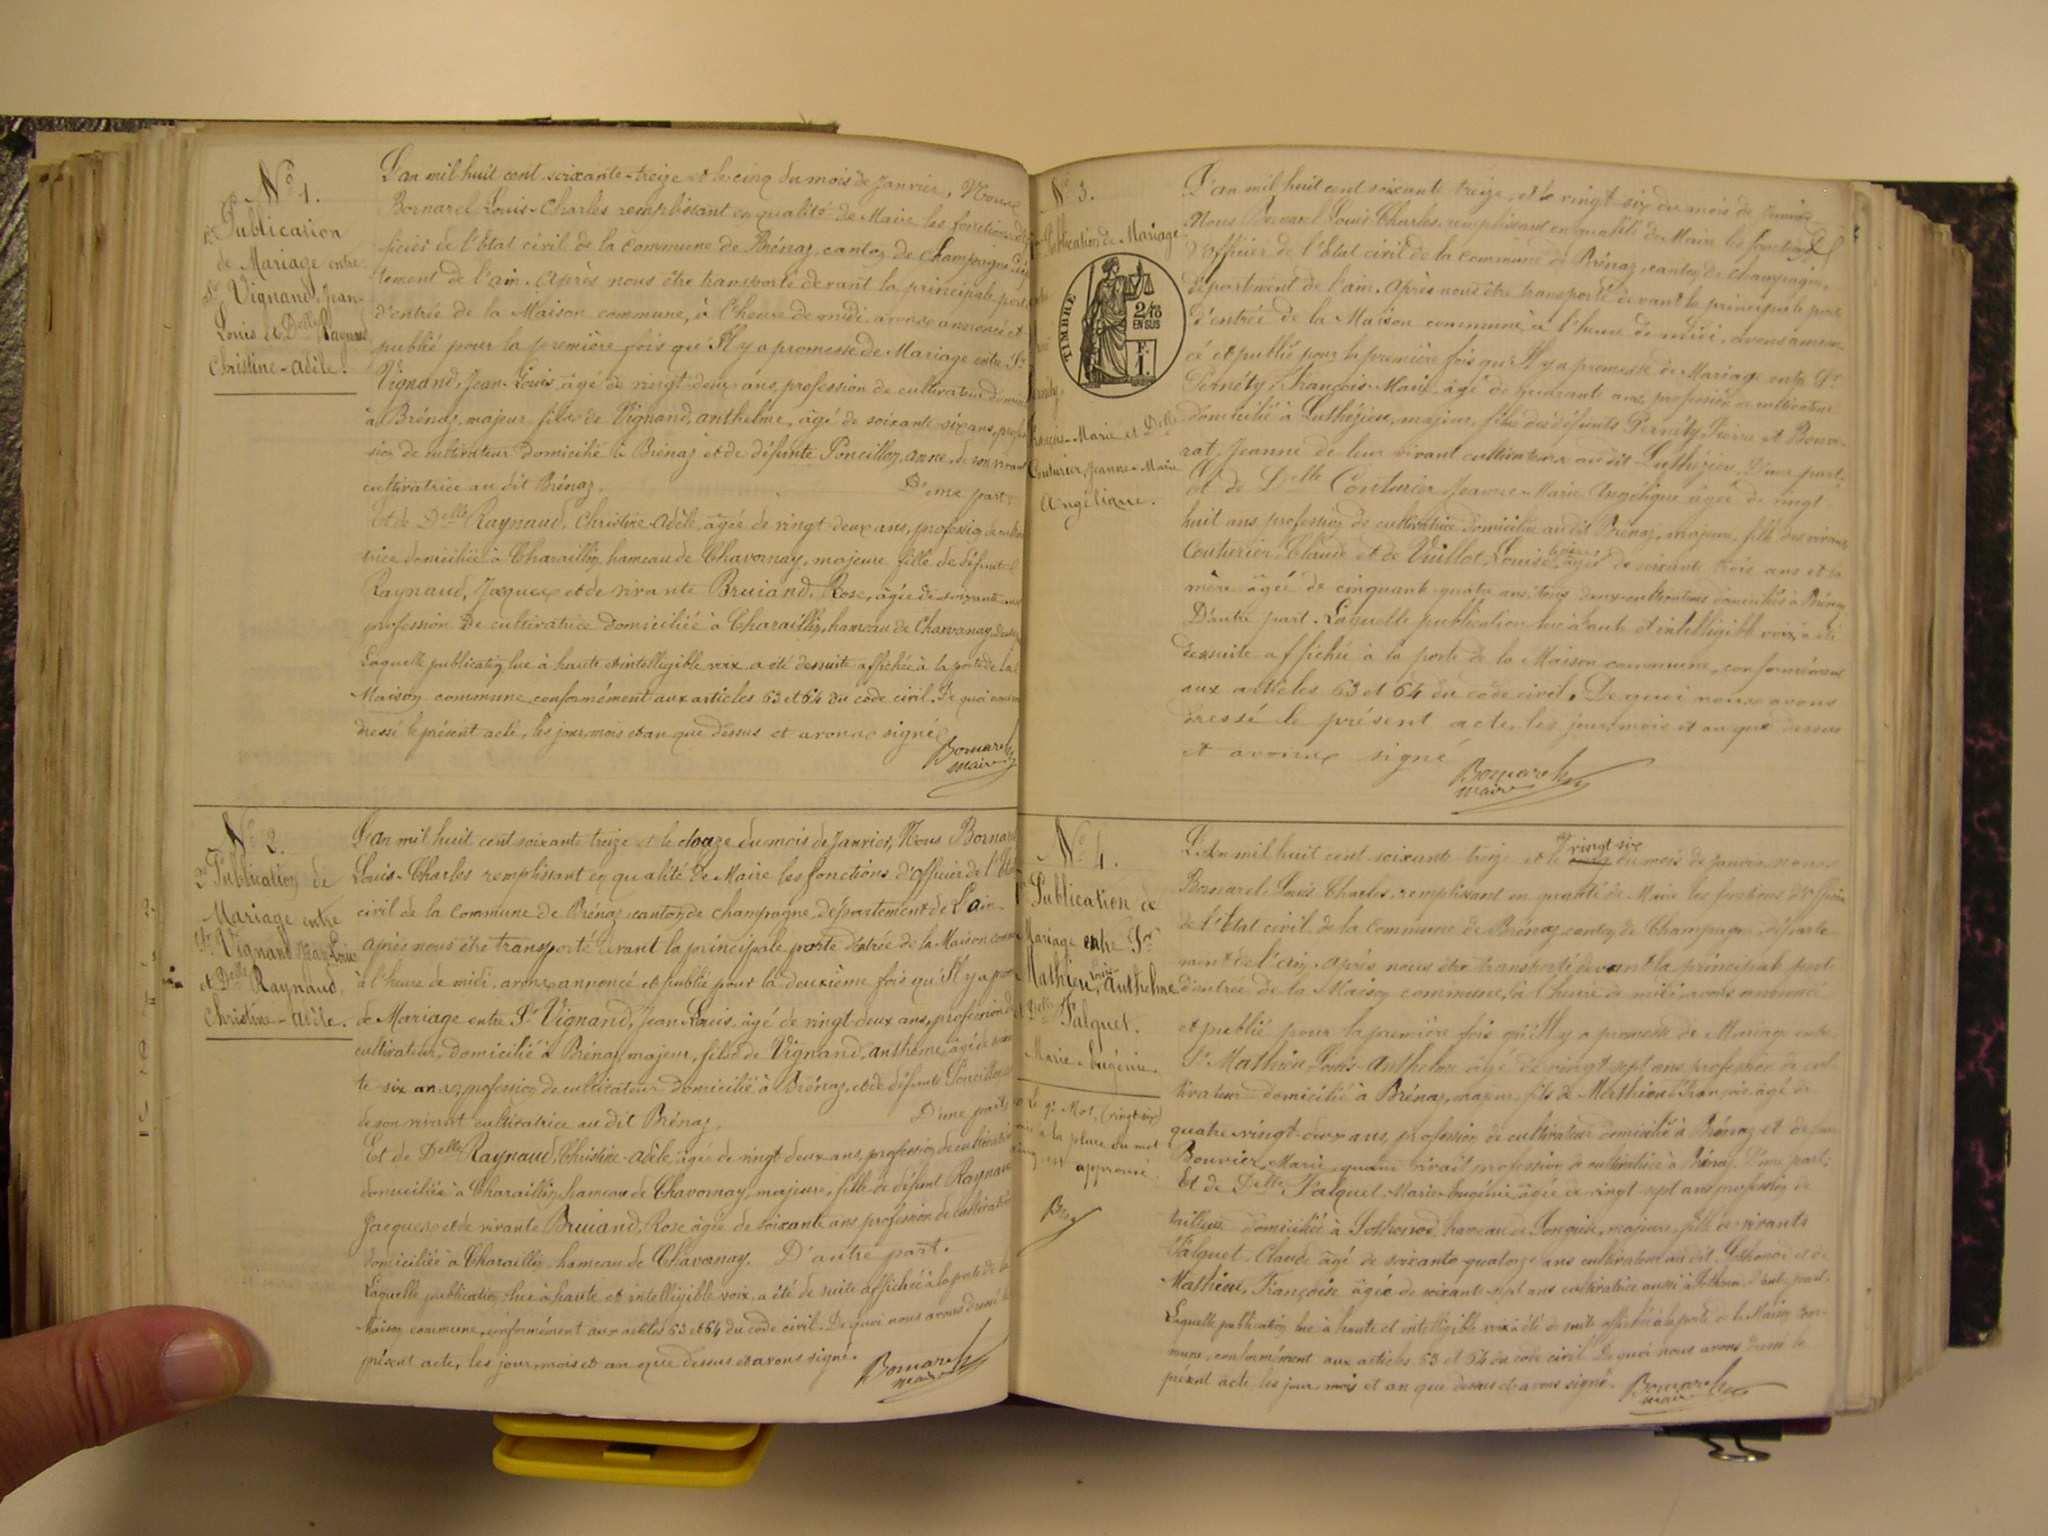 N° 1.
1re Publication
de Mariage entre
Sr Vignand, Jean-
Louis et Delle Raynaud
Christine-Adèle.
L'an mil huit cent soixante-treize et le cinq du mois de Janvier, Nous
Bornarel Louis-Charles remplissant en qualité de Maire les fonctions
ficier de l'Etat civil de la Commune de Brénaz, canton de Champagne,
tement de l'ain. Après nous être transporté devant la principale porte
d'entrée de la Maison commune, à l'heure de midi, avons annoncé et
publié pour la première fois qu'Il y a promesse de Mariage entre Sr
Vignand, Jean-Louis, âgé de vingt-deux ans, profession de cultivateur
à Brénaz, majeur fils de Vignand, anthelme, âgé de soixante six ans, profes
sion de cultivateur domicilié à Brénaz et de défunte Poncillon, anne, de son vivant
cultivatrice au dit Brénaz. D'une part;
Et de Delle Raynaud, Christine-Adèle, âgée de vingt-deux ans, profession de cultiva
trice domiciliée à Charaillin hameau de Chavornay, majeure fille de défunt
Raynaud, Jacques et de vivante Bruiand, Rose, âgée de soixante ans
profession De cultivatrice domiciliée à Charaillin, hameau de Chavornay,
Laquelle publication lue à haute et intelligible voix a été dessuite affichée à la porte de la
Maison commune, conformément aux articles 63 et 64 du code civil. De quoi avons
dressé le présent acte, les jour, mois et an que dessus et avons signé
Bornarel
maire
N° 2.
2e Publication de
Mariage entre
Sr Vignand Jean Louis
et Delle Raynaud,
Christine-Adèle.
L'an mil huit cent soixante treize et le douze du mois de Janvier, Nous Bornarel
Louis-Charles remplissant en qualité de Maire les fonctions d'Officier de l'Etat
civil de la Commune de Brénaz canton de Champagne, département de L'ain.
Après nous être transporté devant la principale porte d'entrée de la Maison commune
à l'heure de midi, avons annoncé et publié pour la deuxième fois qu'Il y a promesse
de Mariage entre Sr Vignand, Jean Louis, âgé de vingt-deux ans, profession de
cultivateur, domicilié à Brénaz, majeur, fils de Vignand, anthelme, âgé de soixan
te six ans, profession de cultivateur domicilié à Brénaz, et de défunte Poncillon,
de son vivant cultivatrice au dit Brénaz. D'une part;
Et de Delle Raynaud, Christine-Adèle âgée de vingt deux ans, profession de cultivatrice
domiciliée à Charaillin, hameau de Chavornay, majeure, fille de défunt Raynaud
Jacques et de vivante Bruiand, Rose âgée de soixante ans profession de cultivatrice
domiciliée à Charaillin hameau de Chavornay. D'autre part.
Laquelle publication, lue à haute et intelligible voix, a été de suite affichée à la porte de la
Maison commune, conformément aux articles 63 et 64 du code civil. De quoi nous avons dressé le
présent acte, les jour, mois et an que dessus et avons signé.
Bornarel
maire
N° 3.
Publication de Mariage
TIMBRE
2/10
EN SUS
F.
1.
François-Marie et Delle
Couturier, Jeanne-Marie
Angélique.
L'an mil huit cent soixante treize, et le vingt-six du mois de Janvier
Nous Bornarel Louis Charles, remplissant en qualité de Maire les fonctions
d'officier de l'Etat civil de la Commune de Brénaz, canton de champagne,
département de l'ain. Après nous être transporté devant la principale porte
d'entrée de la Maison commune à l'heure de midi, avons annon-
cé et publié pour la première fois qu'Il y a promesse de Mariage entre Sr
Pernéty, François-Marie, âgé de quarante ans, profession de cultivateur
domicilié à Luthézieu, majeur, fils des défunts Pernéty, Pierre et Bonne-
rat, Jeanne de leur vivant cultivateurs au dit Luthézieu, D'une part;
Et de Delle Couturier Jeanne-Marie Angélique âgée de vingt
huit ans, profession de cultivatrice domiciliée au dit Brénaz, majeure, fille des vivants
Couturier, Claude et de Vuillot, Louise, le père âgé de soixante trois ans et la
mère âgée de cinquante-quatre ans, tous deux cultivateurs domiciliés à Brénaz
D'autre part. Laquelle publication lue à haute et intelligible voix a été
dessuite affichée à la porte de la Maison commune, conformément
aux articles 63 et 64 du code civil. De quoi nous avons
dressé le présent acte, les jour, mois et an que dessus
et avons signé
Bornarel
maire
N° 4.
1re Publication de
Mariage entre Sr
Mathieu, Louis-Anthelme
et Delle Falquet.
Marie-Eugénie.
Le 9e Mot, (vingt-six)
mis à la place du mot
cinq est approuvé
L'An mil huit cent soixante treize et le cinq vingt-six du mois de Janvier, nous
Bornarel Louis Charles, remplissant en qualité de Maire les fonctions d'Officier
de l'Etat civil de la Commune de Brénaz canton de Champagne départe-
ment de l'ain. Après nous être transporté devant la principale porte
d'entrée de la Maison commune, à l'heure de midi, avons annoncé
et publié pour la première fois qu'Il y a promesse de Mariage entre
Sr Mathieu Louis-Anthelme âgé de vingt sept ans profession de cul
tivateur domicilié à Brénaz, majeur, fils de Mathieu François âgé de
quatre-vingt-deux ans, profession de cultivateur domicilié à Brénaz et de
Bouvier, Marie quand vivait profession de cultivatrice à Brénaz. D'une part;
Et de Delle Falquet Marie-Eugénie âgée de vingt sept ans profession de
tailleuse domiciliée à Sothonod, hameau de Songieu, majeure, fille de vivants
Falquet Claude âgé de soixante quatorze ans cultivateur au dit Sothonod et de
Mathieu, Françoise âgée de soixante-sept ans cultivatrice aussi à Sothonod, d'autre part.
Laquelle publication lue à haute et intelligible voix a été de suite affichée à la porte de la Maison com-
mune, conformément aux articles 63 et 64 du code civil. De quoi nous avons dressé le
présent acte, les jour, mois et an que dessus et avons signé.
Bornarel
maire